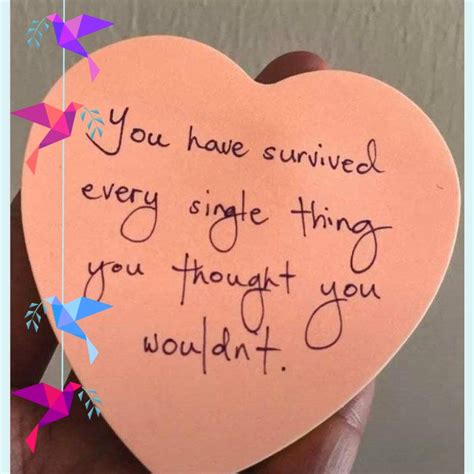 You have survived
every single thing
you thought you
wouldn't.